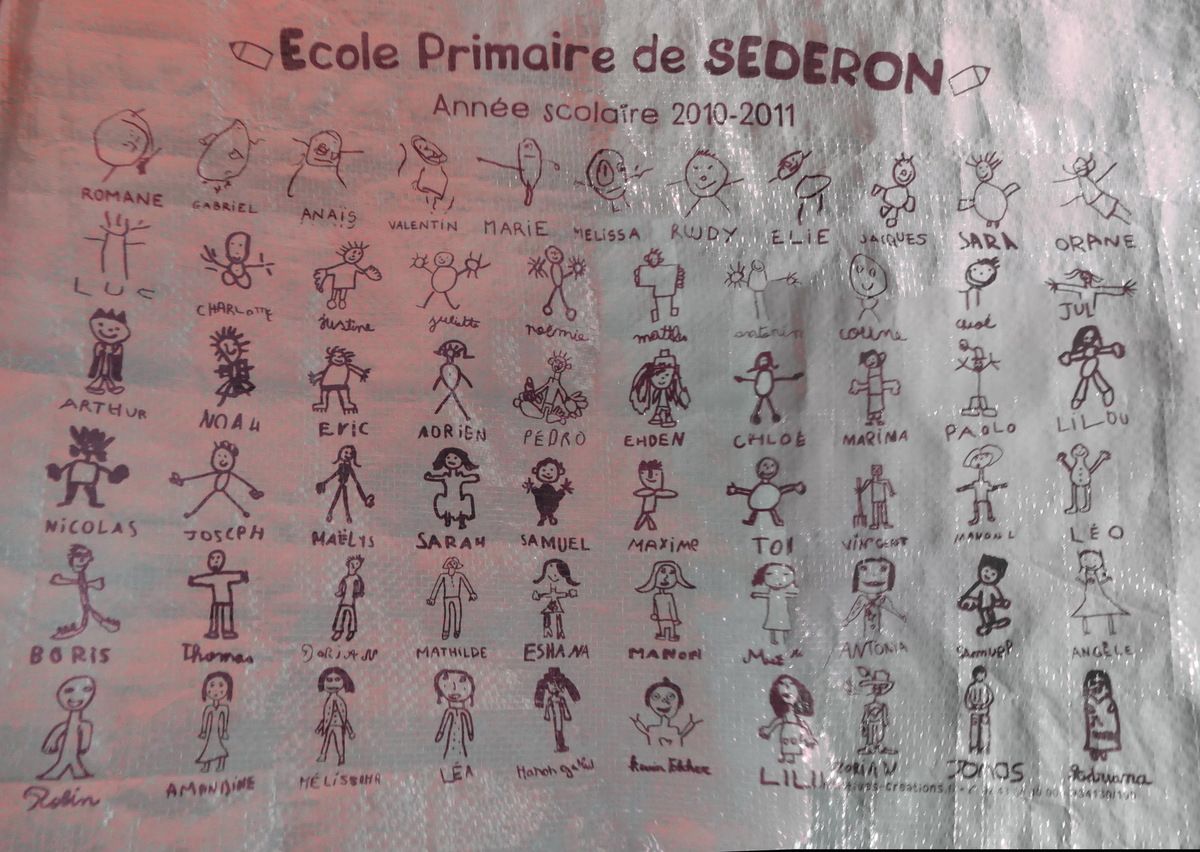 Ecole Primaire de SEDERON
Année scolaire 2010-2011
ROMANE GABRIEL ANAïS VALENTIN MARIE MELISSA RUDY ELIE JACQUES SARA ORANE
LUC CHARLOTTE Justine juliette noémie mattéo antonin corine cloé JUL
ARTHUR NOAH Eric ADRIEN PÉDRO EHDEN CHLOÉ MARINA PAOLO LILOU
NiCOLAS JOSEPH MAËLYS SARAH SAMUEL MAXIME TOI VINCENT MANOEL LÉO
BORIS Thomas DORIAN MATHILDE ESHANA MANON ANTONIA SAMUEL ANGÈLE
Robin AMANDINE MÉLISSANA LÉA Manon LILI FLORIAN JONAS Adriana